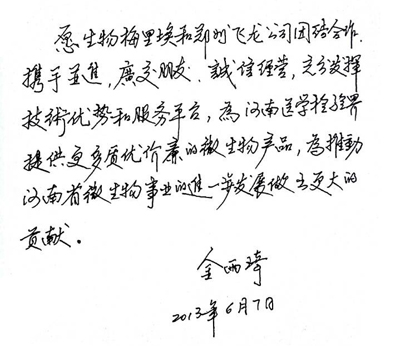 愿生物梅里埃和郑州飞龙公司团结合作.
携手並進，廣交朋友、誠信经营，充分发挥
技術优势和服务平台，為河南医学检验界
提供更多质优价廉的微生物产品，為推動
河南省微生物事业的進一步发展做出更大的
贡献。
2013年6月7日